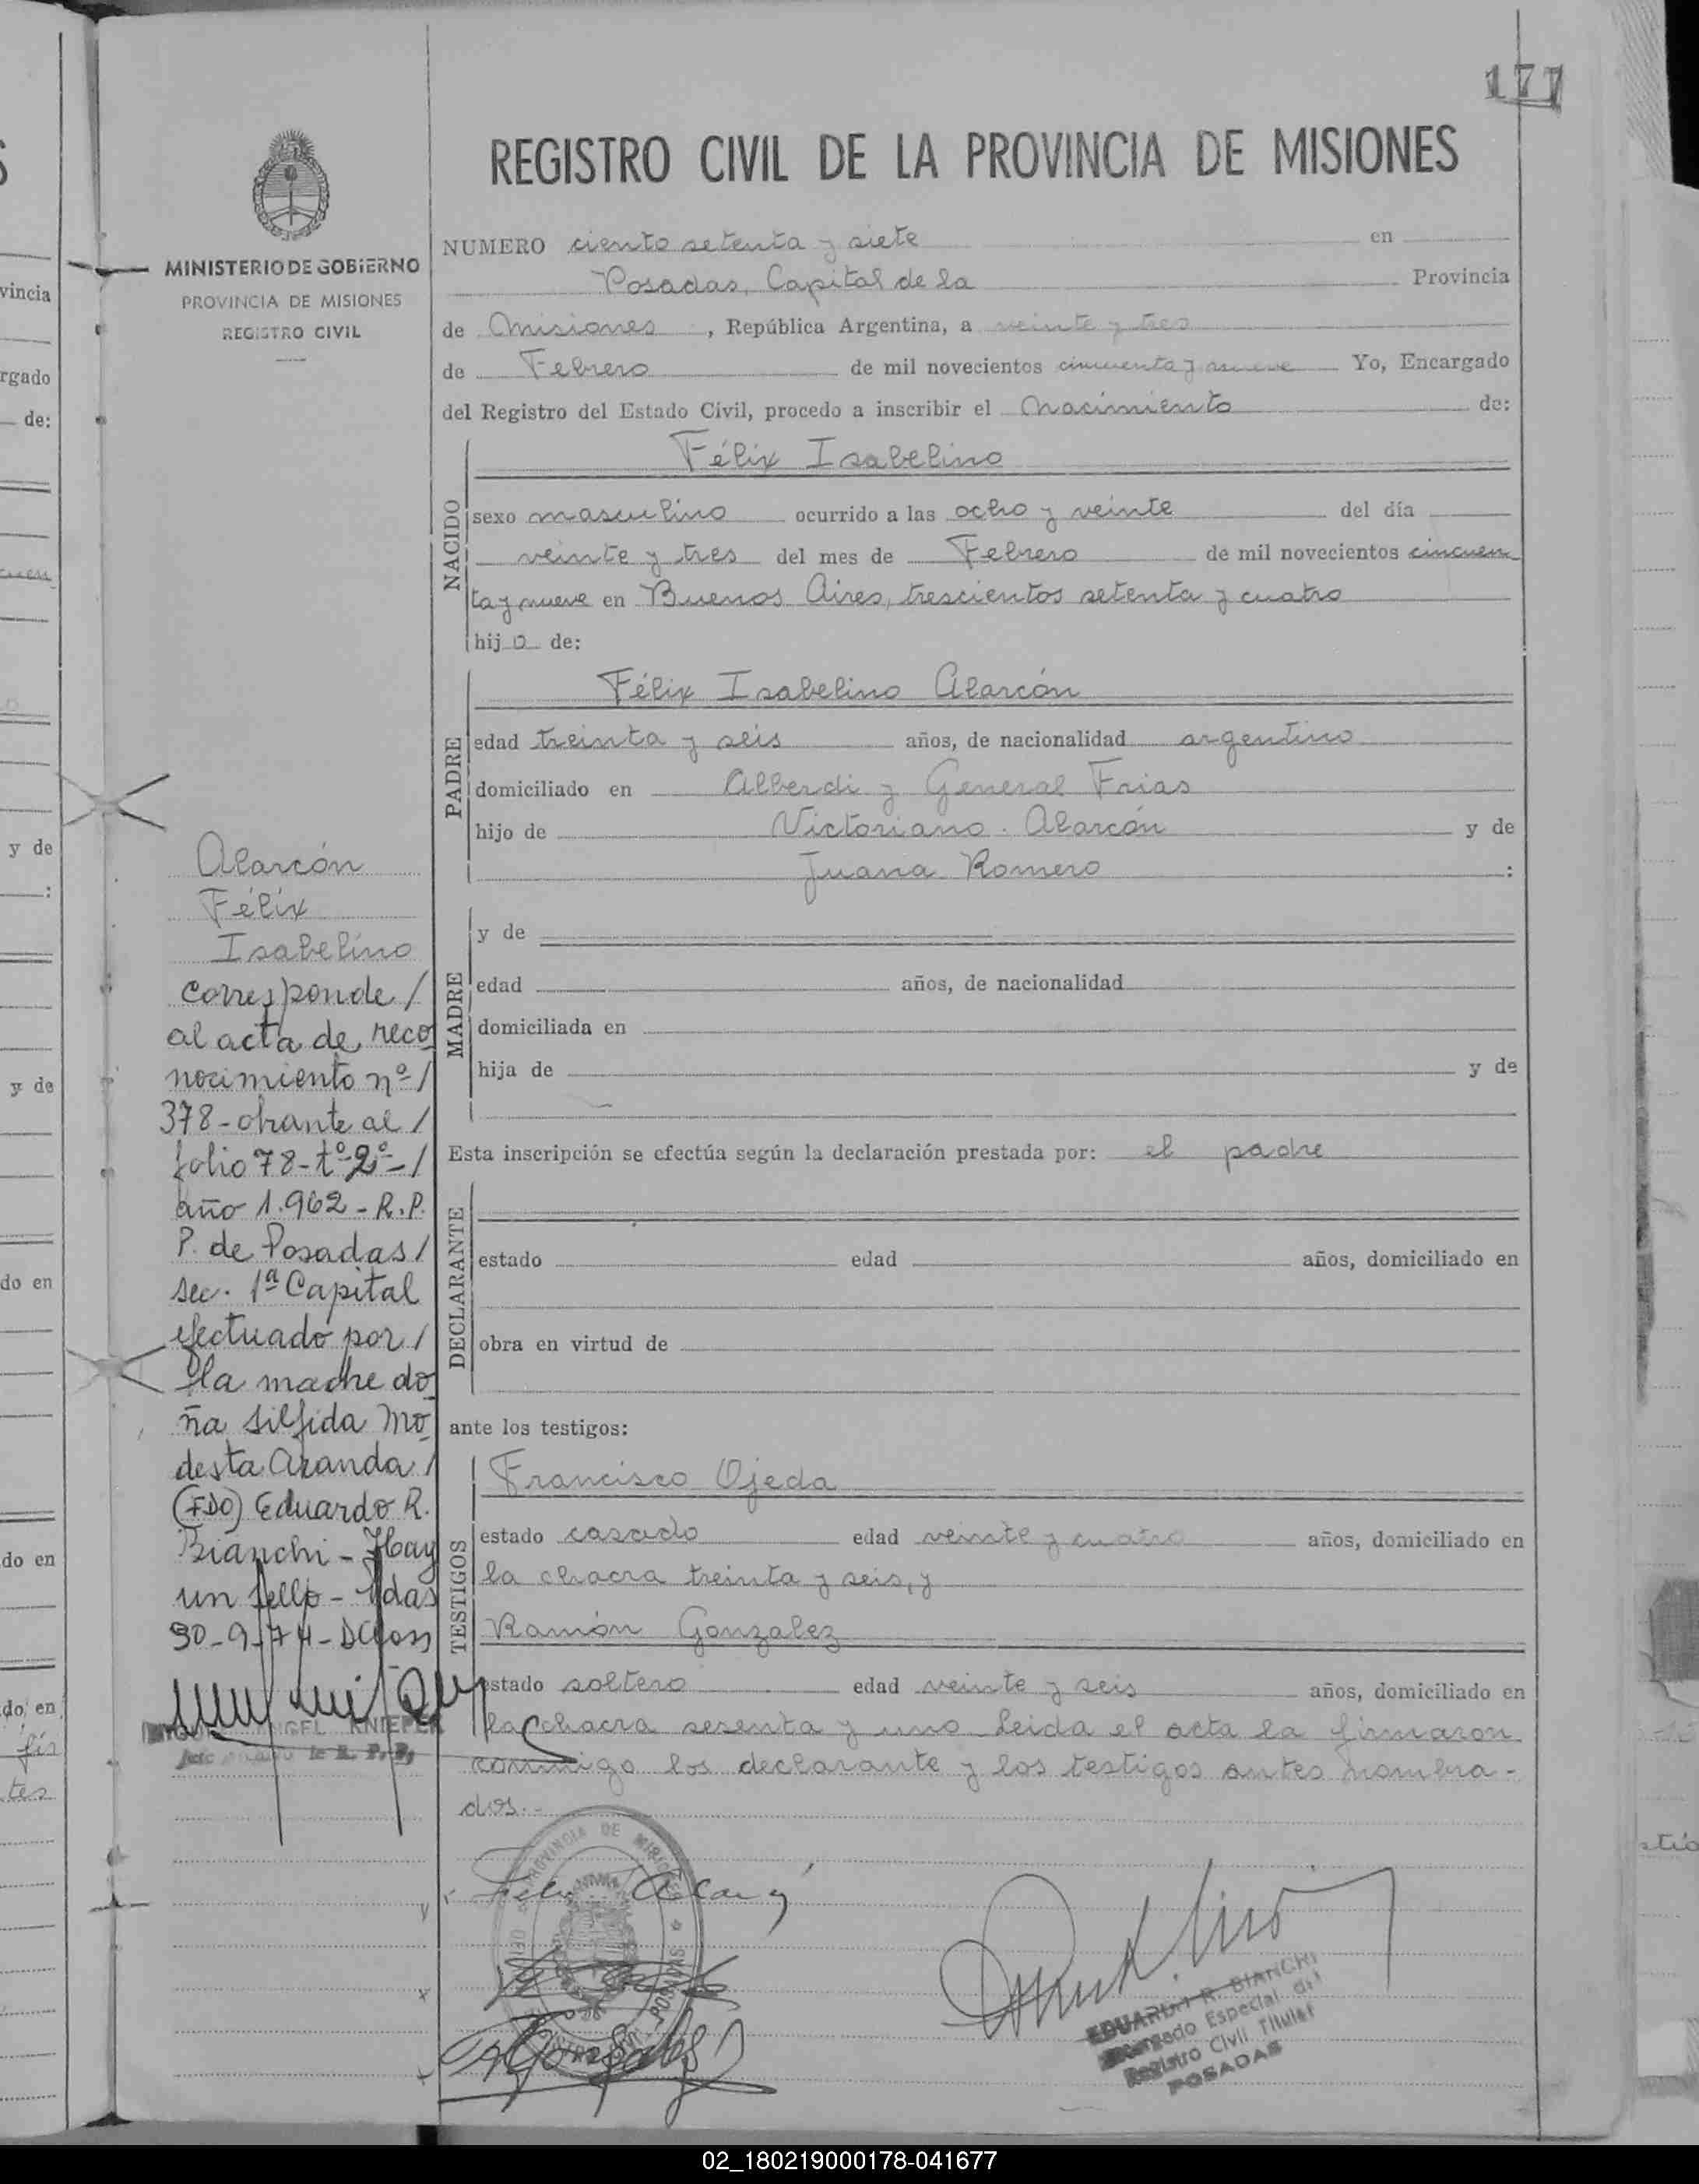 177
REGISTRO CIVIL DE LA PROVINCIA DE MISIONES
MINISTERIO DE GOBIERNO
PROVINCIA DE MISIONES
REGISTRO CIVIL
NUMERO ciento setenta y siete en
Posadas, Capital de la Provincia
de Misiones, República Argentina, a veinte y tres
de Febrero de mil novecientos cincuenta y nueve Yo, Encargado
del Registro del Estado Civil, procedo a inscribir el Nacimiento de:
NACIDO
Félix Isabelino
sexo masculino ocurrido a las ocho y veinte del día
veinte y tres del mes de Febrero de mil novecientos cincuen
ta y nueve en Buenos Aires, trescientos setenta y cuatro
hijo de:
PADRE
Félix Isabelino Alarcón
edad treinta y seis años, de nacionalidad argentino
domiciliado en Alberdi y General Frias
hijo de Victoriano Alarcón y de
Juana Romero :
MADRE
y de
edad años, de nacionalidad
domiciliada en
hija de y de
Esta inscripción se efectúa según la declaración prestada por: el padre
DECLARANTE
estado edad años, domiciliado en
obra en virtud de
ante los testigos:
TESTIGOS
Francisco Ojeda
estado casado edad veinte y cuatro años, domiciliado en
la chacra treinta y seis, y
Ramón Gonzalez
estado soltero edad veinte y seis años, domiciliado en
la chacra sesenta y uno Leida el acta la firmaron
conmigo los declarante y los testigos antes nombra-
dos.-
Alarcón
Félix
Isabelino
corresponde /
al acta de reco
nocimiento nº /
378 - obrante al /
folio 78 - tº 2º - /
año 1.962 - R.P.
P. de Posadas /
sec. 1ª Capital
efectuado por /
la madre do
ña Silfida Mo
desta Aranda /
(FDO) Eduardo R.
Bianchi - Hay
un sello - Pdas
30-9-74 -
ANGEL KNIEPER
R. P. P.
PROVINCIA DE MISIONES
POSADAS
EDUARDO R. BIANCHI
Encargado Especial del
Registro Civil Titular
POSADAS
vincia
rgado
de:
y de
:
y de
do en
do en
do en
tes
02_180219000178-041677